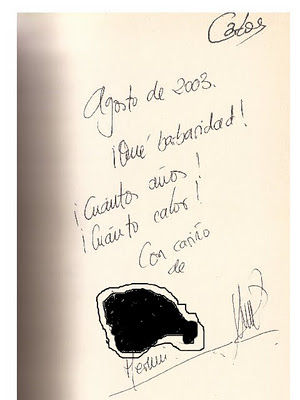 Carlos
Agosto de 2003.
¡Qué barbaridad!
¡Cuántos años!
¡Cuánto calor!
Con cariño
de